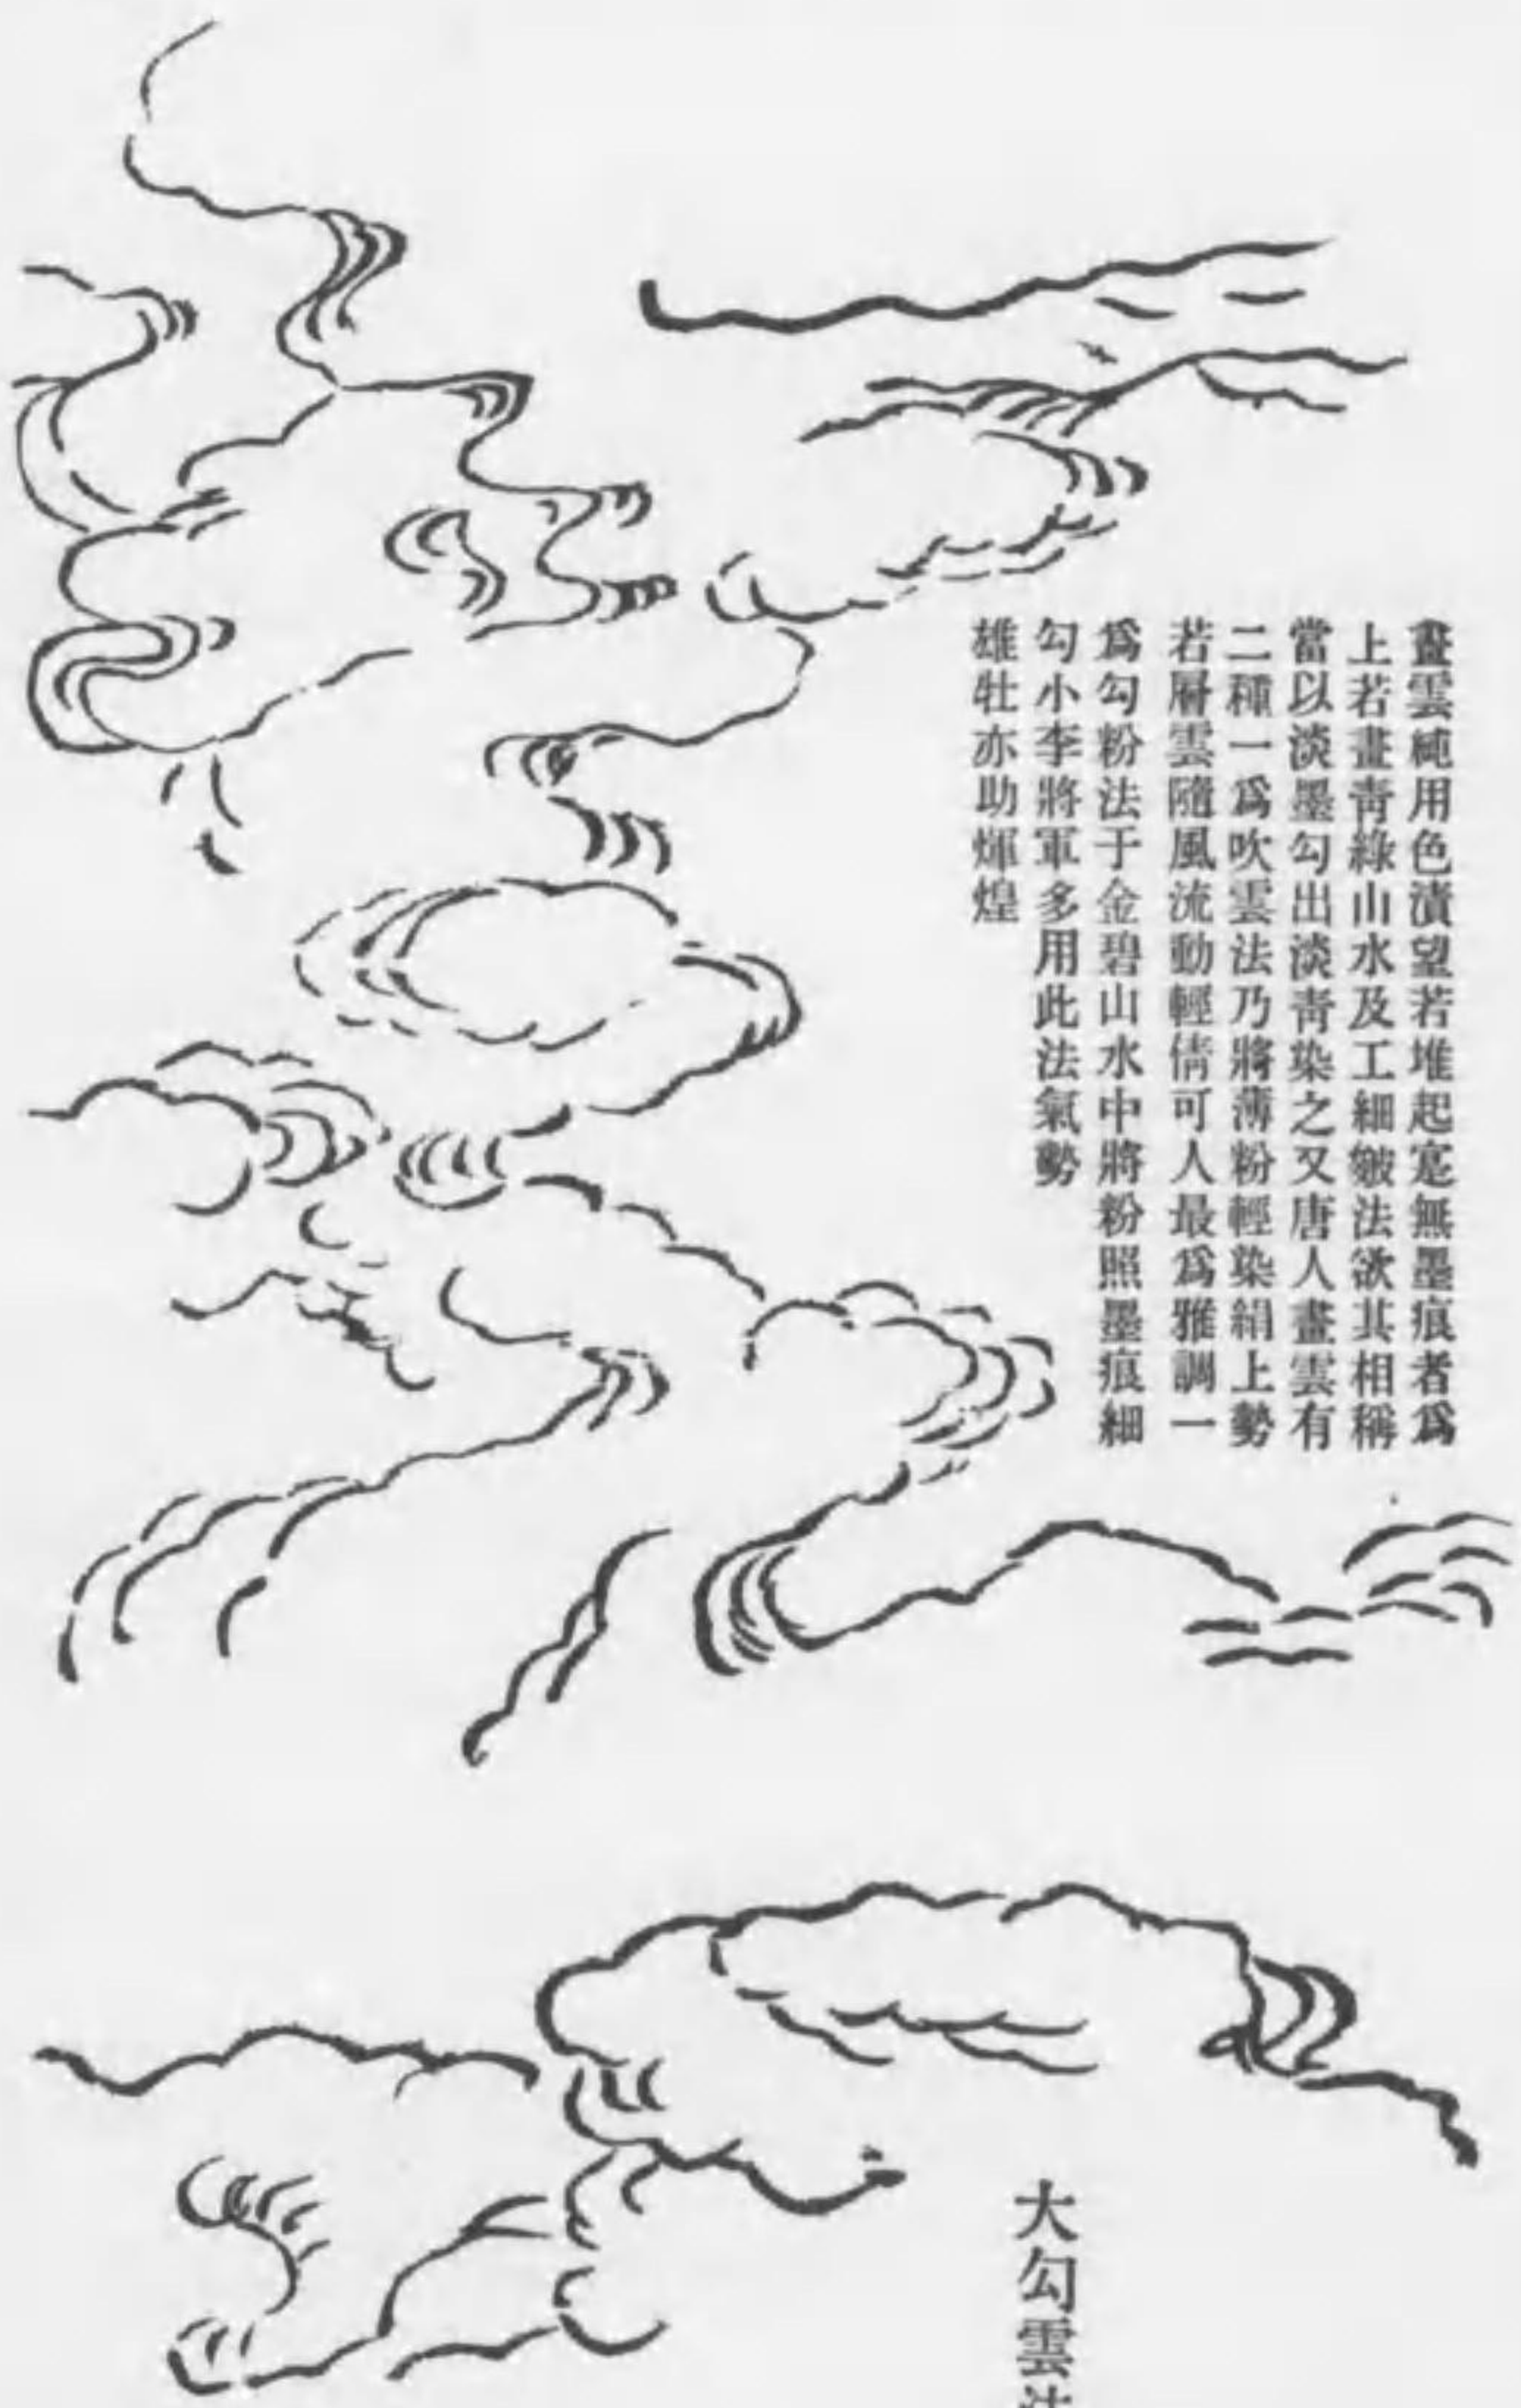 畫雲純用色漬望若堆起寔無墨痕者爲
上若畫靑綠山水及工細皴法欲其相稱
當以淡墨勾出淡靑染之又唐人畫雲有
二種一爲吹雲法乃將薄粉輕染絹上勢
若層雲隨風流動輕倩可人最爲雅調一
爲勾粉法于金碧山水中將粉照墨痕細
勾小李將軍多用此法氣勢
雄壯亦助煇煌
大勾雲法